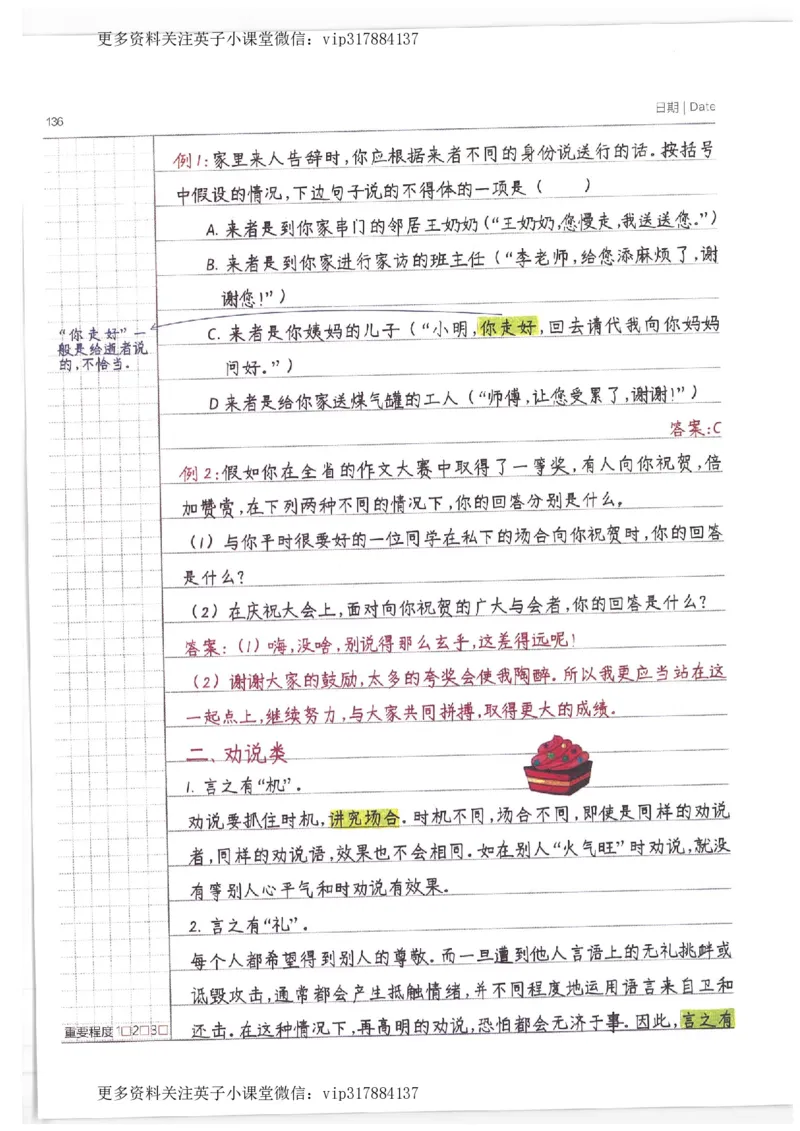 更多资料关注英子小课堂微信：vip317884137
136
日期 | Date
例1：家里来人告辞时，你应根据来者不同的身份说送行的话。按括号
中假设的情况，下边句子说的不得体的一项是（　　）
A. 来者是到你家串门的邻居王奶奶（“王奶奶，您慢走，我送送您。”）
B. 来者是到你家进行家访的班主任（“李老师，给您添麻烦了，谢
谢您！”）
“你走好”一
般是给逝者说
的，不恰当。
C. 来者是你姨妈的儿子（“小明，你走好，回去请代我向你妈妈
问好。”）
D 来者是给你家送煤气罐的工人（“师傅，让您受累了，谢谢！”）
答案：C
例2：假如你在全省的作文大赛中取得了一等奖，有人向你祝贺，倍
加赞赏，在下列两种不同的情况下，你的回答分别是什么。
（1）与你平时很要好的一位同学在私下的场合向你祝贺时，你的回答
是什么？
（2）在庆祝大会上，面对向你祝贺的广大与会者，你的回答是什么？
答案：（1）嗨，没啥，别说得那么玄乎，这差得远呢！
（2）谢谢大家的鼓励，太多的夸奖会使我陶醉。所以我更应当站在这
一起点上，继续努力，与大家共同拼搏，取得更大的成绩。
二、劝说类
1. 言之有“机”。
劝说要抓住时机，讲究场合。时机不同，场合不同，即使是同样的劝说
者，同样的劝说语，效果也不会相同。如在别人“火气旺”时劝说，就没
有等别人心平气和时劝说有效果。
2. 言之有“礼”。
每个人都希望得到别人的尊敬。而一旦遭到他人言语上的无礼挑衅或
诋毁攻击，通常都会产生抵触情绪，并不同程度地运用语言来自卫和
还击。在这种情况下，再高明的劝说，恐怕都会无济于事。因此，言之有
重要程度 1□2□3□
更多资料关注英子小课堂微信：vip317884137